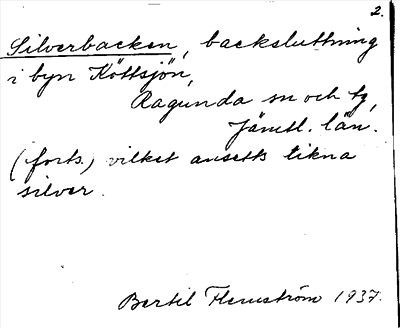 2.
Silverbacken, backsluttning
i byn Köttsjön,
Ragunda sn och tg,
Jämtl. län.
(forts.) vilket ansetts likna
silver.
Bertil Flemström 1937.